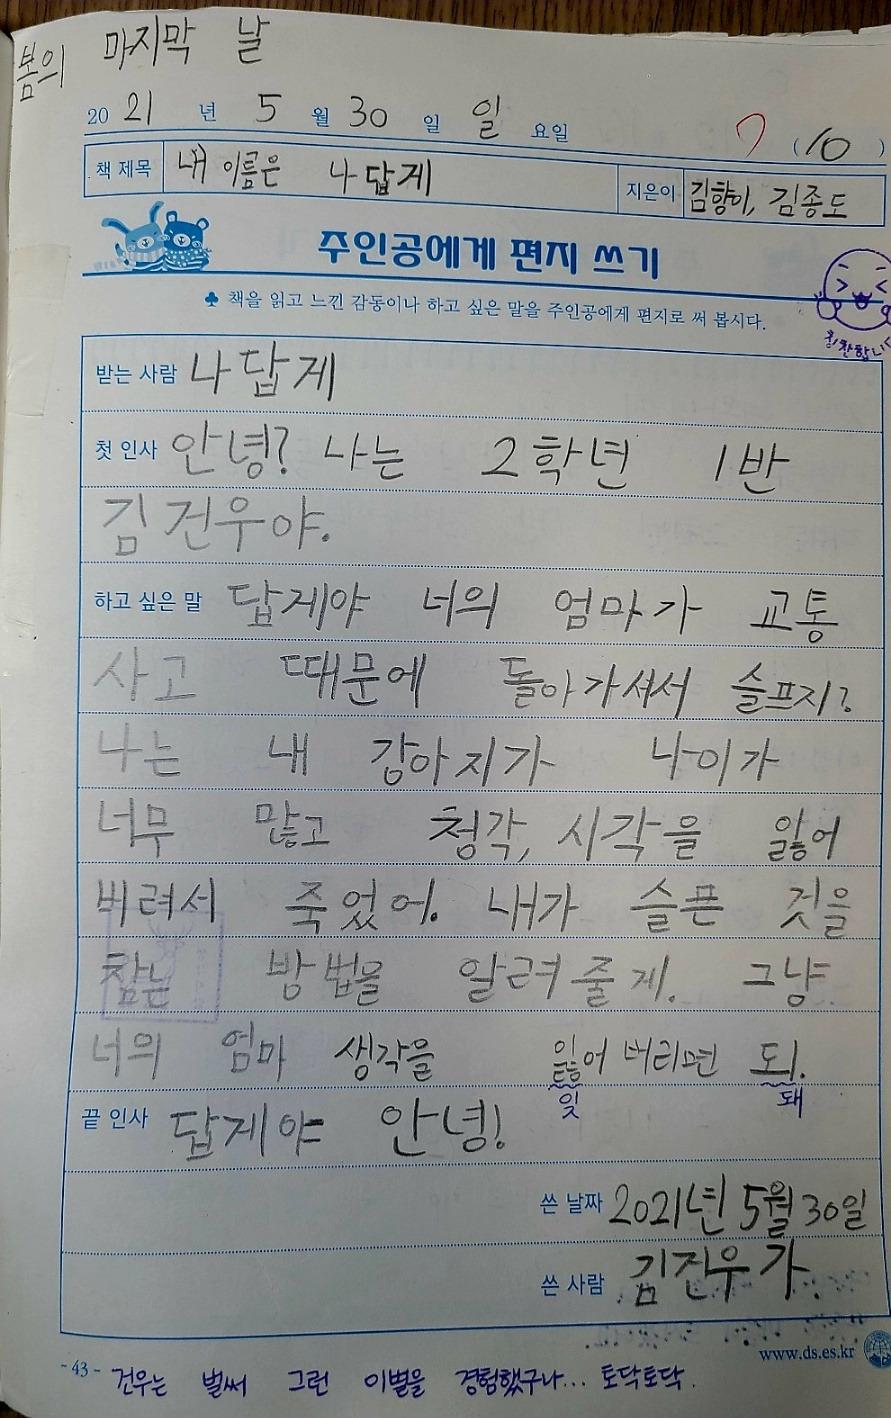 봄의 마지막 날
2021 년 5 월 30 일 일 요일 7 (10)
책 제목 내 이름은 나답게 지은이 김향이, 김종도
주인공에게 편지 쓰기
♣ 책을 읽고 느낀 감동이나 하고 싶은 말을 주인공에게 편지로 써 봅시다.
칭찬합니다
받는 사람 나답게
첫 인사 안녕? 나는 2학년 1반
김건우야.
하고 싶은 말 답게야 너의 엄마가 교통
사고 때문에 돌아가셔서 슬프지?
나는 내 강아지가 나이가
너무 많고 청각, 시각을 잃어
버려서 죽었어. 내가 슬픈 것을
참는 방법을 알려줄게. 그냥
너의 엄마 생각을 잃어버리면 되.
잊 돼
끝 인사 답게야 안녕!
쓴 날짜 2021년 5월 30일
쓴 사람 김건우가
www.ds.es.kr
- 43 - 건우는 벌써 그런 이별을 경험했구나... 토닥토닥.